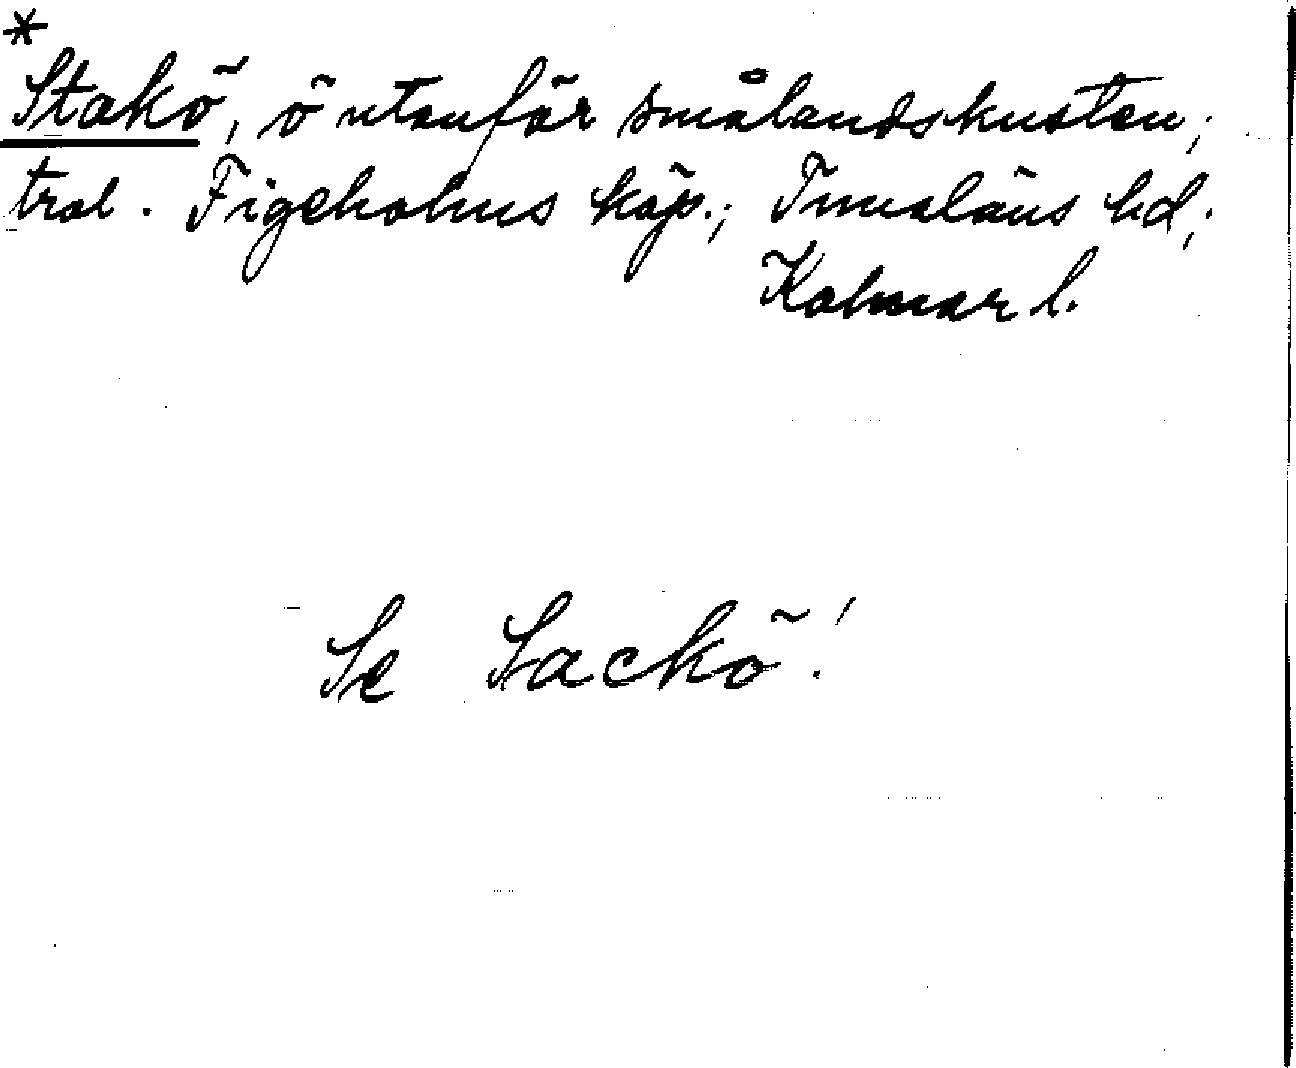 *
Stakö, ö utanför smålandskusten;
trol. Figeholms köp.; Tunaläns hd;
Kalmar l.
Se Sackö!